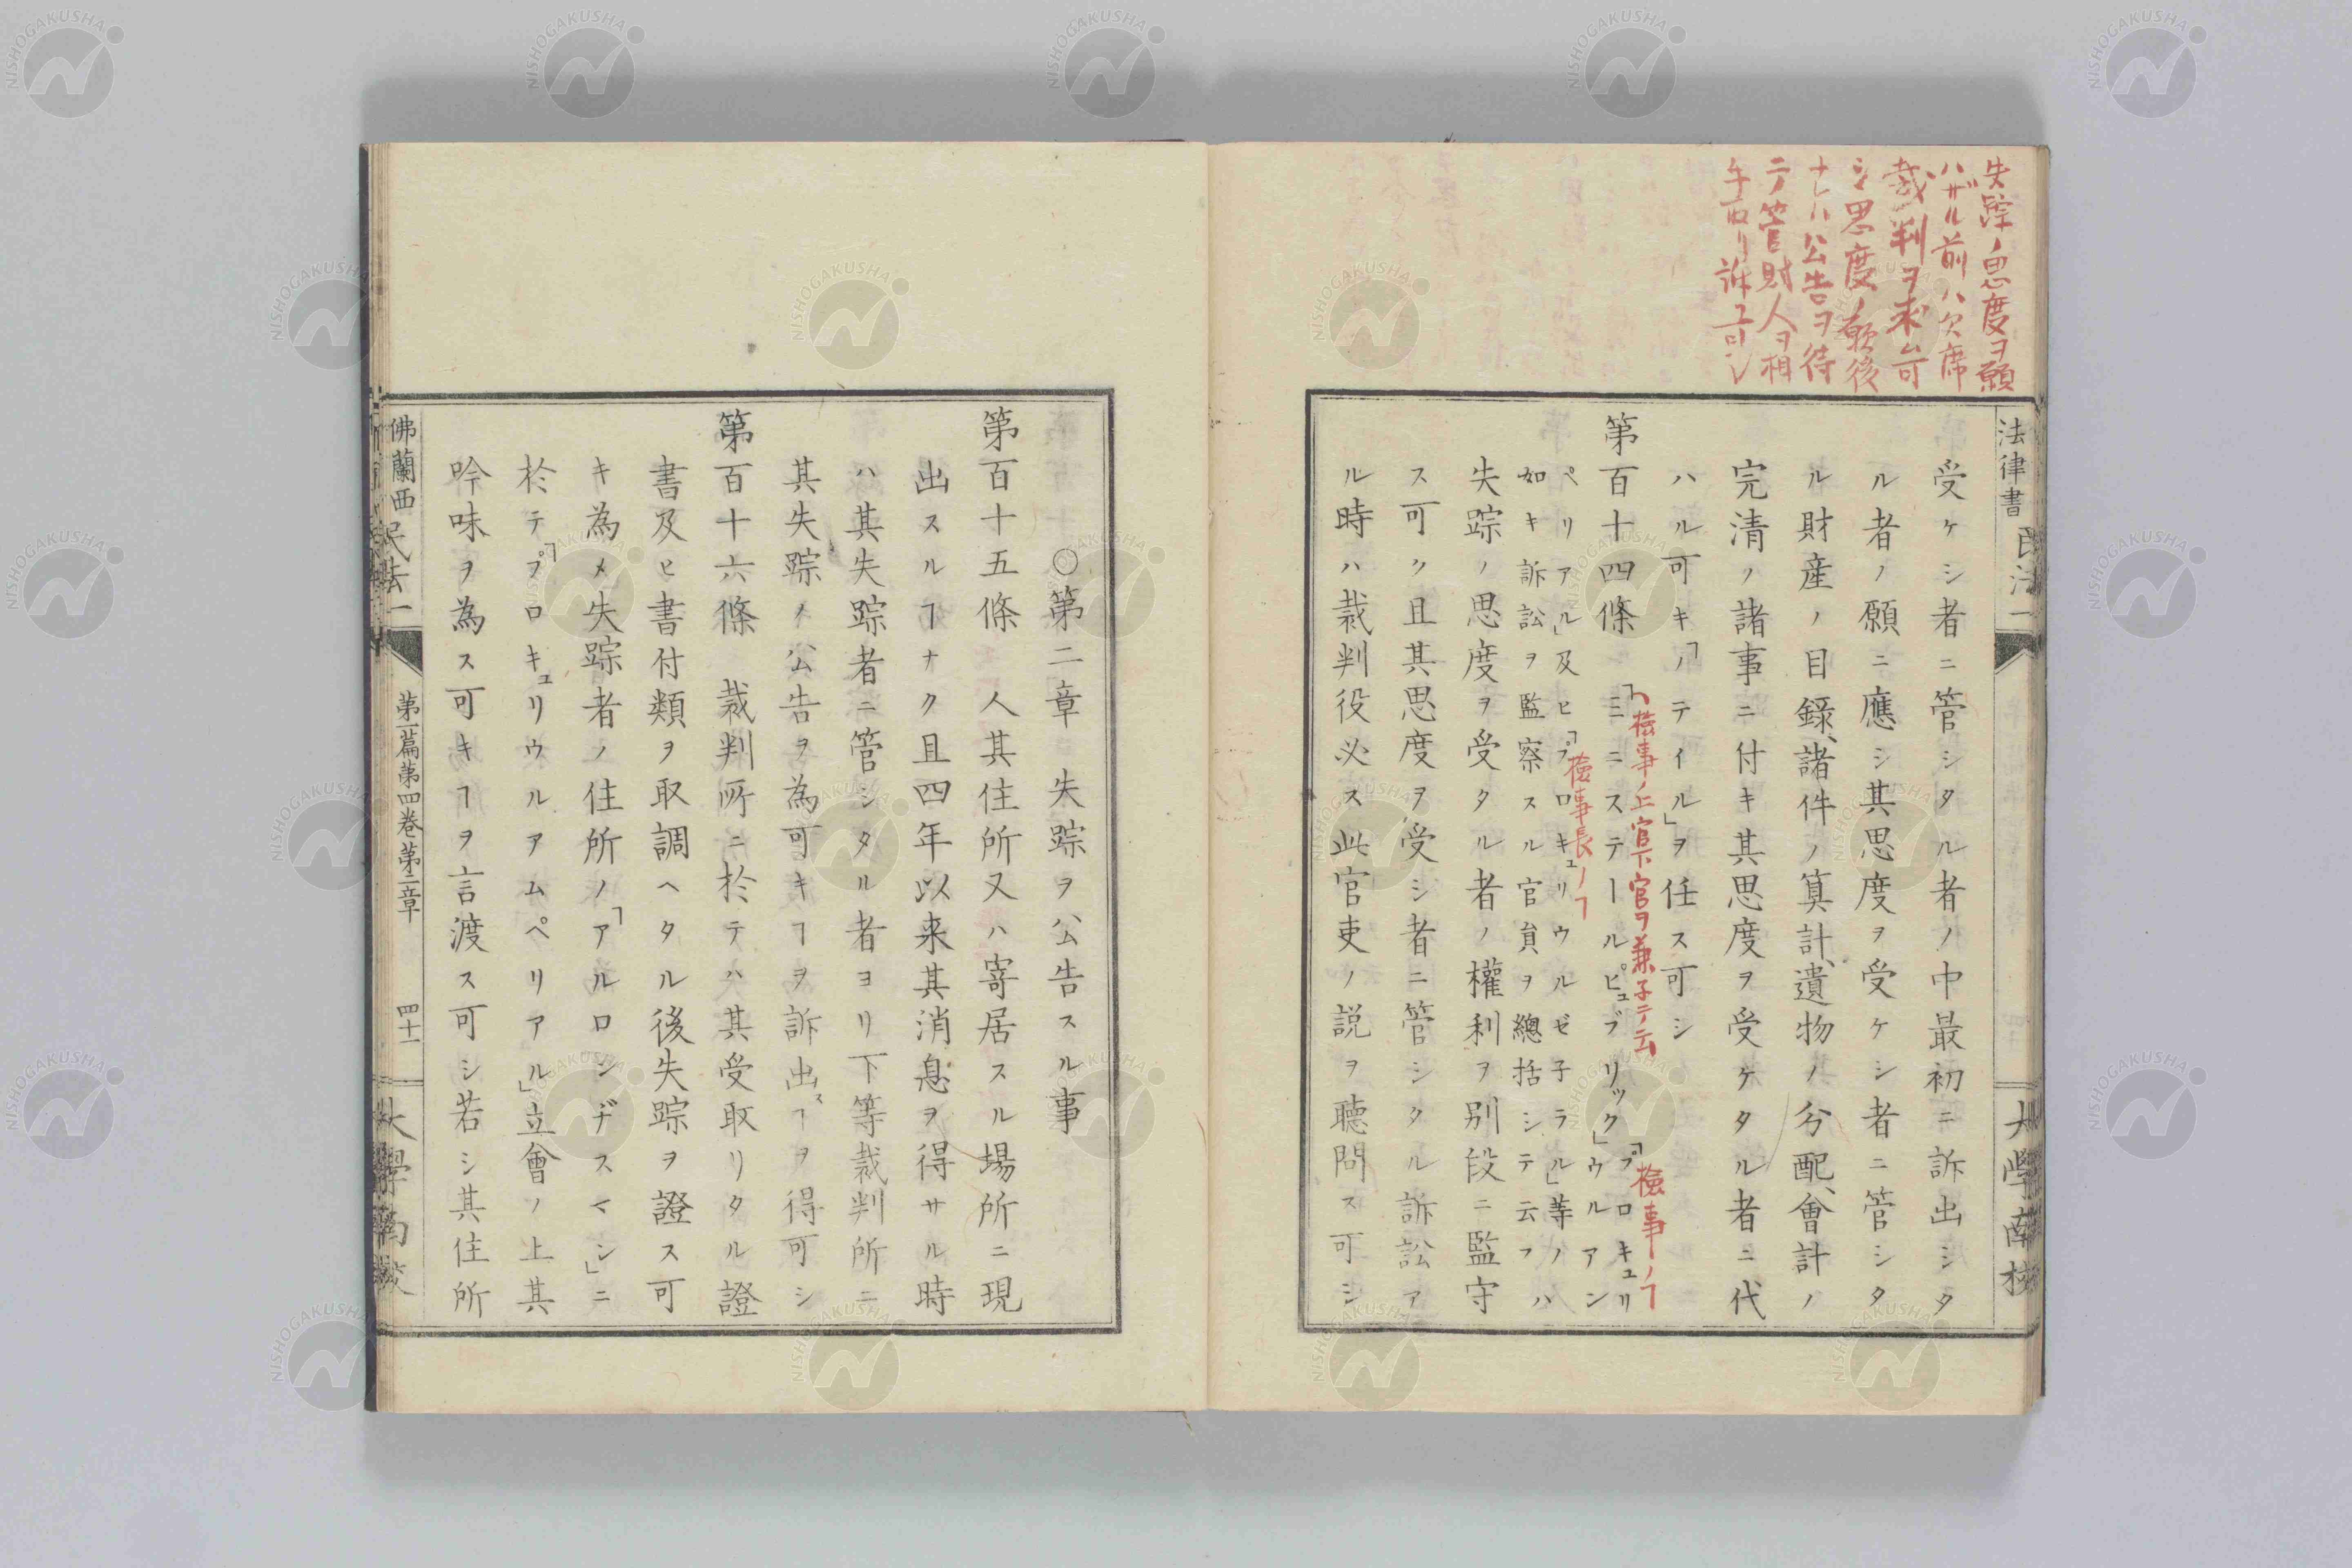 失踪ノ思度ヲ願
ハザル前ハ欠席
裁判ヲ求ム可
シ思度ノ願後
ナレハ公告ヲ待
テ管財人ヲ相
手取リ訴ユ可シ
法律書 民法一
大學南校
受ケシ者ニ管シタル者ノ中最初ニ訴出シタ
ル者ノ願ニ應シ其思度ヲ受ケシ者ニ管シタ
ル財産ノ目録、諸件ノ算計、遺物ノ分配、會計ノ
完清ノ諸事ニ付キ其思度ヲ受ケタル者ニ代
ハル可キ「ノテイル」ヲ任ス可シ
檢事ノ上官下官ヲ兼子テ云
檢事ノヿ
第百十四條 「ミニステールピュブリック」
「プロキュリ
ウルアン
ペリアル」及ヒ「プロキュリウルゼ子ラル」等ノ
檢事長ノヿ
如キ訴訟ヲ監察スル官員ヲ總括シテ云フハ
失踪ノ思度ヲ受タル者ノ權利ヲ別段ニ監守
ス可ク且其思度ヲ受シ者ニ管シタル訴訟ア
ル時ハ裁判役必ス此官吏ノ説ヲ聴問ス可シ
○第二章 失踪ヲ公告スル事
第百十五條 人其住所又ハ寄居スル場所ニ現
出スルヿナク且四年以来其消息ヲ得サル時
ハ其失踪者ニ管シタル者ヨリ下等裁判所ニ
其失踪ノ公告ヲ為可キヿヲ訴出スヿヲ得可シ
第百十六條 裁判所ニ於テハ其受取リタル證
書及ヒ書付類ヲ取調ヘタル後失踪ヲ證ス可
キ為メ失踪者ノ住所ノ「アルロンヂスマン」ニ
於テ「プロキュリウルアムペリアル」立會ノ上其
吟味ヲ為ス可キヿヲ言渡ス可シ若シ其住所
佛蘭西民法一
第一篇第四巻第二章
四十一
大學南校